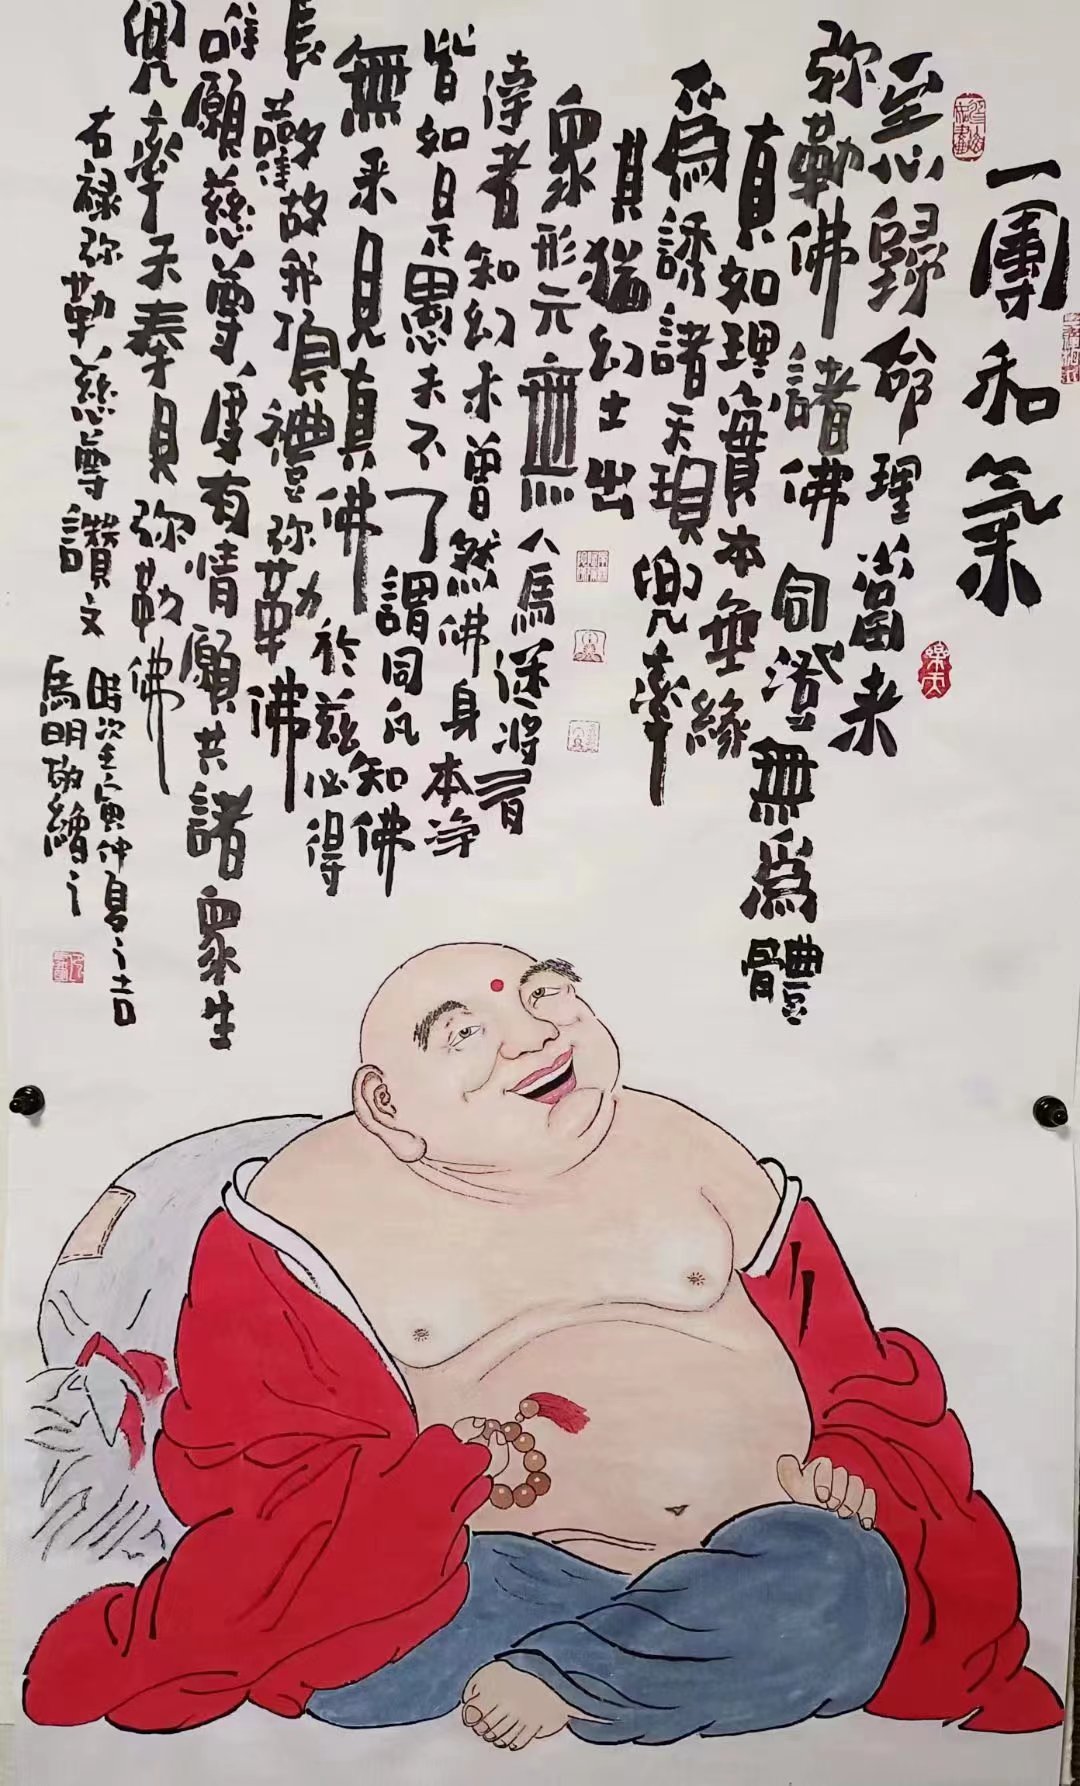 一團和氣
至心歸命理當来
弥勒佛諸佛同證無為體
真如理實本無緣
為誘諸天現兜率
其猶幻士出
眾形元無人馬迷將有
達者知幻未曾然佛身本净
皆如是愚夫不了謂同凡知佛
無来見真佛於兹必得
長歡故我頂禮弥勒佛
唯願慈尊度有情願共諸眾生
兜率天奉見弥勒佛
右禄弥勒慈尊讚文時次壬寅仲夏之吉
馬明敬繪之